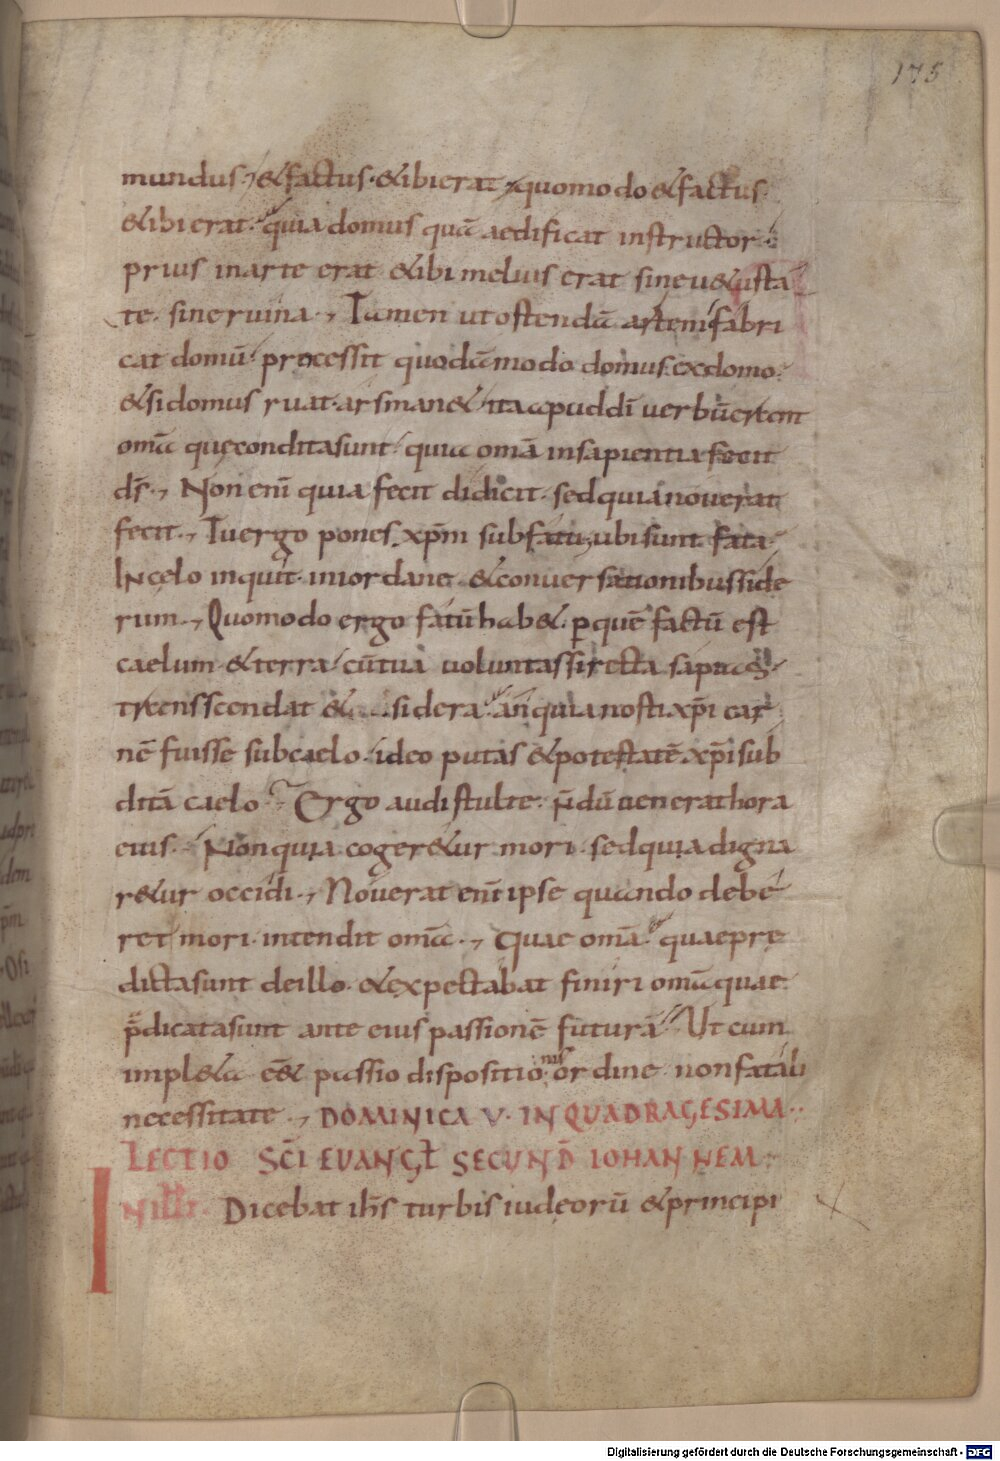 175
mundus, & factus & ibi erat quomodo & factus
& ibi erat. quia domus quā aedificat instructor
prius in arte erat & ibi melius erat sine uetusta
te. sine ruina, Tamen ut ostendā artem fabri
cat domū processit quodāmodo domus ex domo.
& si domus ruat. ars man& ita apud dm̄ uerbū erant
omā quę condita sunt quia omā in sapientia fecit
ds̄, Non enī quia fecit didicit. sed quia nouerat
fecit, Tu ergo pones xp̄m sub fatū, ubi sunt fata
In cęlo inquit. in ordane & conuersationibus side
rum, Quomodo ergo fatū hab& p quē factū est
caelum & terra cū tua uoluntas si recta sapias
transscendat & sidera an quia nosti xp̄i car
nē fuisse sub caelo. ideo putas & potestatē xp̄i sub
ditā caelo Ergo audi stulte. n̄dū uenerat hora
eius. Non quia coger&ur mori. sed quia digna
r&ur occidi, Nouerat enī ipse quando debe
ret mori. intendit omā, Quae omā quae prę
dicta sunt de illo. & expectabat finiri omā quae
p̄dicata sunt ante eius passionē futurā Ut cum
impl&a ēē& passio dispositionis ordine non fatali
necessitate, DOMINICA V. IN QUADRAGESIMA
LECTIO SCĪ EUANGL̄ SECUND̄ IOHANNEM
IN illt̄. Dicebat ih̄s turbis iudęorū & principi
Digitalisierung gefördert durch die Deutsche Forschungsgemeinschaft - DFG